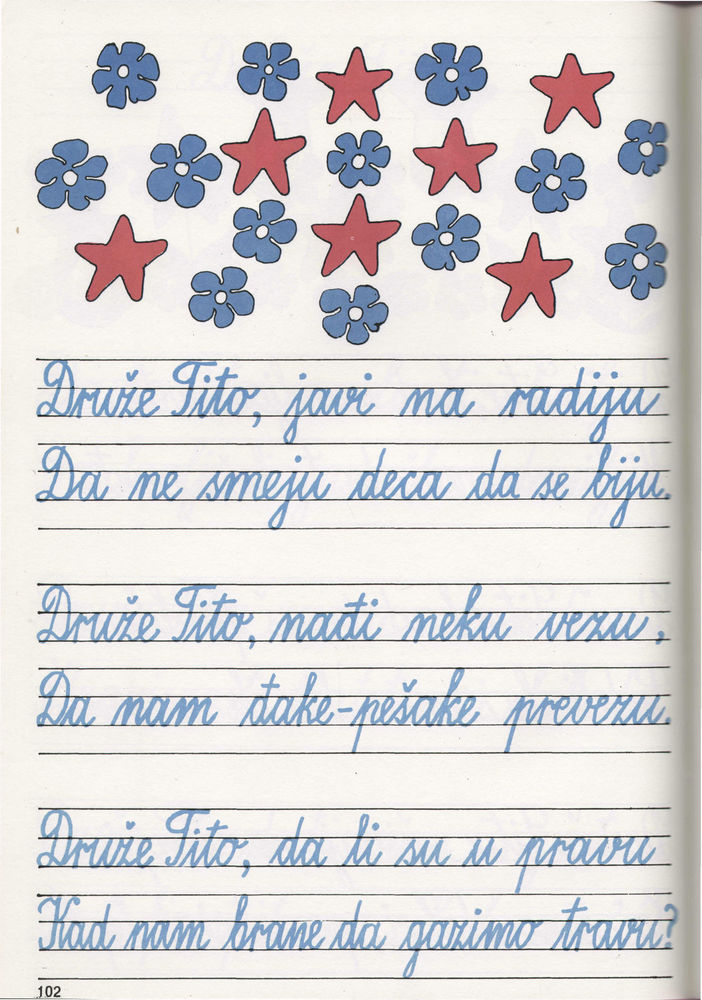 Druže Tito, javi na radiju
Da ne smeju deca da se biju.
Druže Tito, nađi neku vezu,
Da nam đake-pešake prevezu.
Druže Tito, da li su u pravu
Kad nam brane da gazimo travu?
102